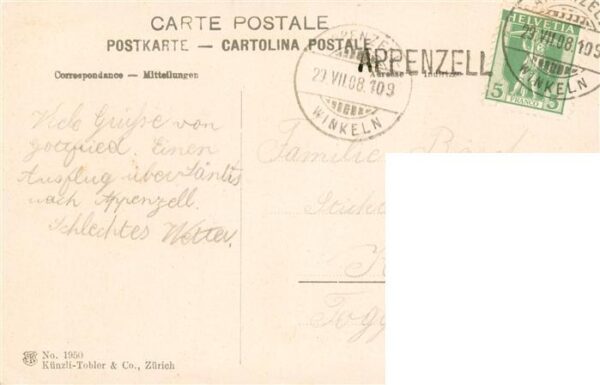 CARTE POSTALE
POSTKARTE — CARTOLINA POSTALE
APPENZELL
Correspondance — Mitteilungen
Adresse — Indirizzo
APPENZELL
29.VII.08.109
WINKELN
HELVETIA
5 FRANCO 5
APPENZELL
29.VII.08.109
WINKELN
Viele Grüsse von
Gottfried. Einen
Ausflug über Säntis
nach Appenzell.
Schlechtes Wetter.
Familie
Togg
No. 1950
Künzli-Tobler & Co., Zürich